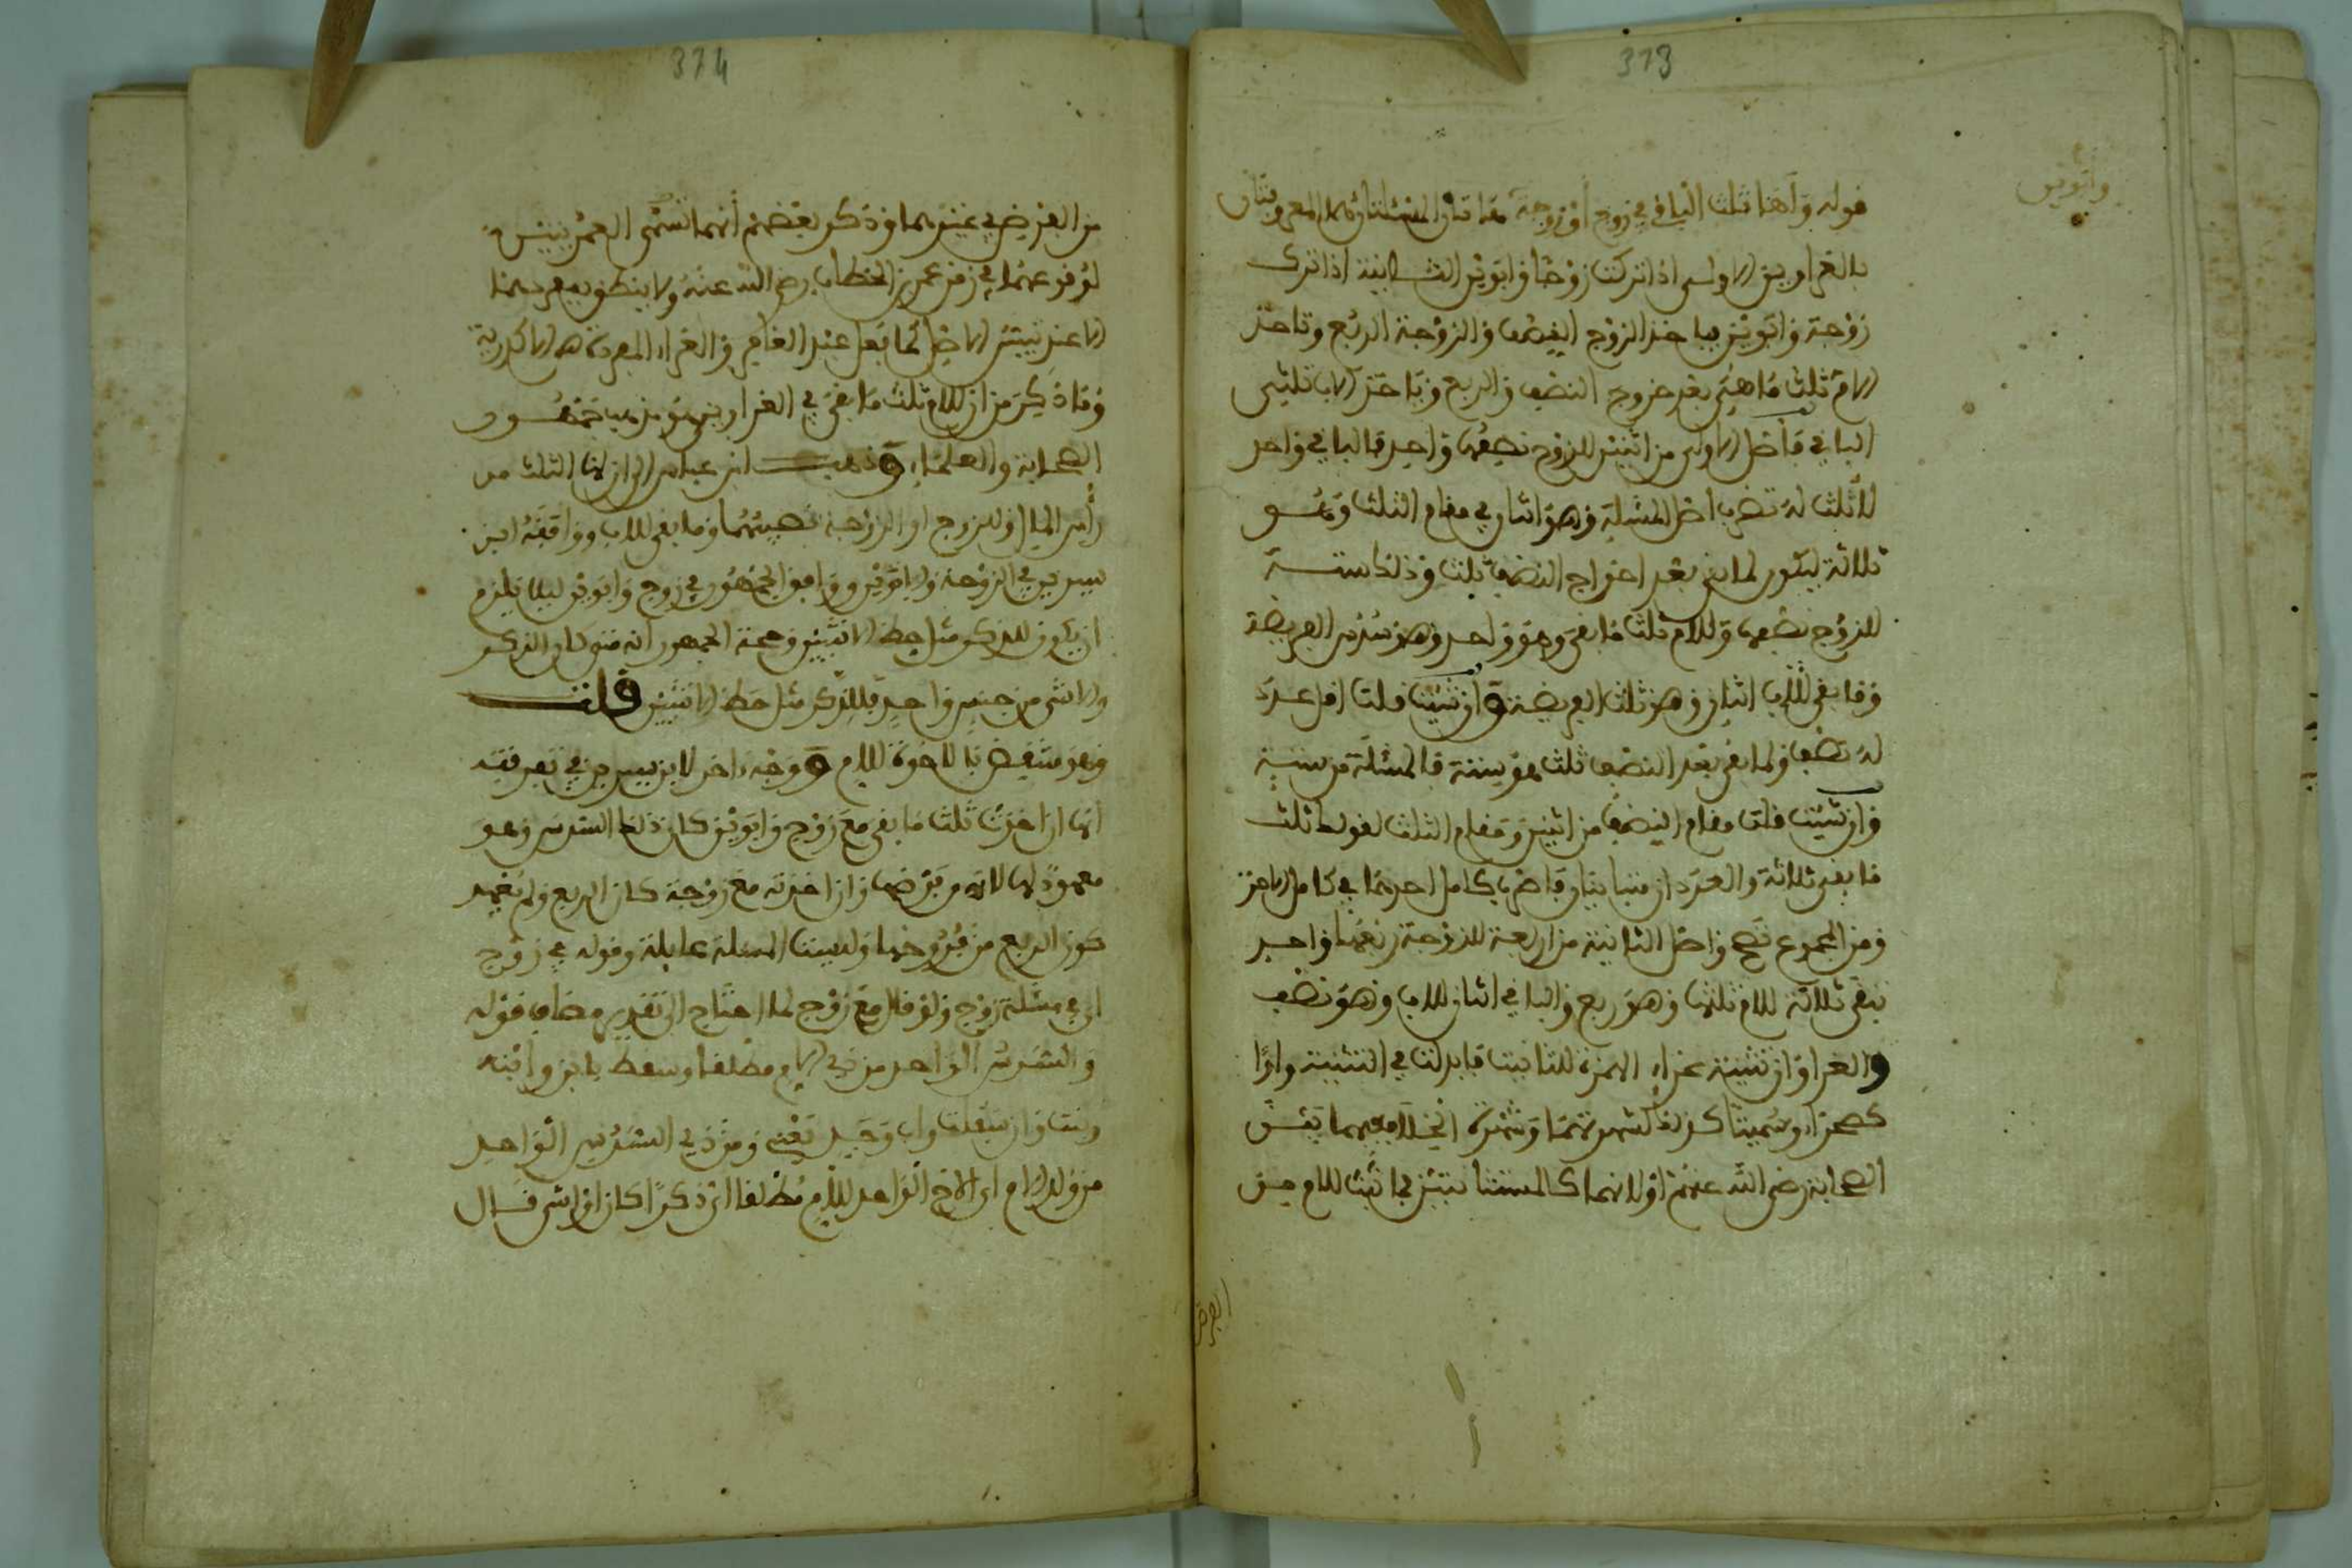 373
وأبوين
قوله ولها ثلث الباقي في زوج أو زوجة هاتان المسئلتان هما المعروفتان
بالغراوين الاولى اذا تركت زوجا وأبوين الثانية اذا ترك
زوجة وأبوين فياخذ الزوج النصف والزوجة الربع وتاخذ
الام ثلث ما بقي بعد خروج النصف والربع وياخذ الاب ثلثي
الباقي فأصل الاولى من اثنين للزوج نصفها واحد فالباقي واحد
لا ثلث له تضرب أصل المسئلة وهو اثنان في مقام الثلث وهو
ثلاثة ليكون لما بقي بعد اخراج النصف ثلث وذلك ستة
للزوج نصفها وللام ثلث ما بقي وهو واحد وهو سدس الفريضة
وما بقي للاب اثنان وهو ثلث الفريضة وان شئت قلت اقل عدد
له نصف ولما بقي بعد النصف ثلث هو ستة فالمسئلة من ستة
وان شئت قلت مقام النصف من اثنين ومقام الثلث لقوله ثلث
ما بقي ثلاثة والعددان متباينان فاضرب كامل احدهما في كامل الاخر
ومن المجموع تصح واصل الثانية من اربعة للزوجة ربعها واحد
يبقى ثلاثة للام ثلثها وهو ربع والباقي اثنان للاب وهو نصف
والغراوان تثنية غراء الهمزة للتانيث فابدلت في التثنية واوا
كصحراء وسميتا كذلك لشهرتهما وشهرة الخلاف فيهما بين
الصحابة رضي الله عنهم او لانهما كالمستثناتين لما ثبت للام من
الفرض
374
من الفرض في غيرهما وذكر بعضهم أنهما تسمى العمريتين
لوقوعهما في زمن عمر بن الخطاب رضي الله عنه ولا ينطق بمفردهما
الا عند تبيين الاصل كما فعل عند الفاعي والغراء المفردة هي الاكدرية
وما ذكر من ان للام ثلث ما بقي في الغراوين هو مذهب جمهور
الصحابة والعلماء وذهب ابن عباس الى ان لها الثلث من
رأس المال وللزوج او الزوجة نصيبهما وما بقي للاب ووافقه ابن
سيرين في الزوجة والابوين ووافق الجمهور في زوج وابوين ليلا يلزم
ان يكون للذكر مثل حظ الانثيين وحجة الجمهور أنه متى كان الذكر
والانثى من جنس واحد فللذكر مثل حظ الانثيين قلت
وهو منتقض بالاخوة للام ووجه اخر لابن سيرين في تفرقته
انها ان اخذت ثلث ما بقي مع زوج وابوين كان ذلك السدس وهو
معهود لها لانه من فرضها وان اخذته مع زوجة كان الربع ولم يعهد
كون الربع من فروضها وليست المسئلة عايلة وقوله في زوج
اي في مسئلة زوج ولو قال مع زوج لما احتاج الى تقدير مضاف قوله
والسدس الواحد من ولد الام مطلقا وسقط بابن وابنه
وبنت وان سفلت واب وجد يعني ومن ذوي السدس الواحد
من ولد الام اي الاخ الواحد للام مطلقا اي ذكرا كان او انثى قال